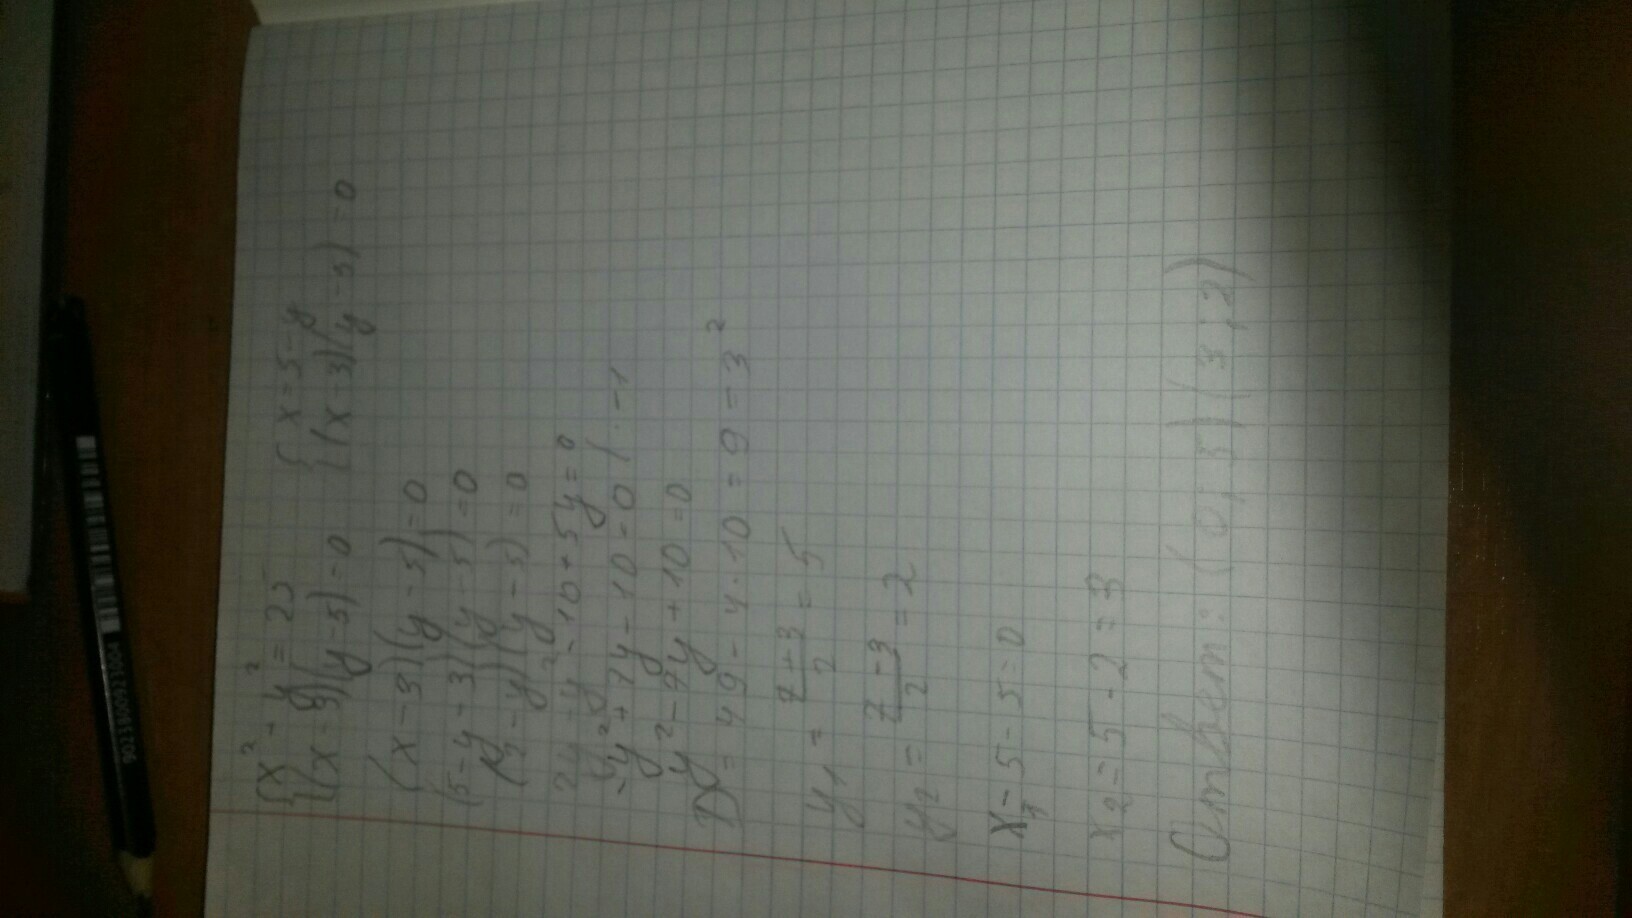 {x² + y² = 25 {x = 5 - y
{(x - 3)(y - 5) = 0 {(x - 3)(y - 5) = 0
(x - 3)(y - 5) = 0
(5 - y - 3)(y - 5) = 0
(2 - y)(y - 5) = 0
2y - y² - 10 + 5y = 0
-y² + 7y - 10 = 0 / · -1
y² - 7y + 10 = 0
D = 49 - 4 · 10 = 9 = 3²
y₁ = 7 + 3 / 2 = 5
y₂ = 7 - 3 / 2 = 2
x₁ = 5 - 5 = 0
x₂ = 5 - 2 = 3
Ответ: (0; 5) (3; 2)
9003180013004